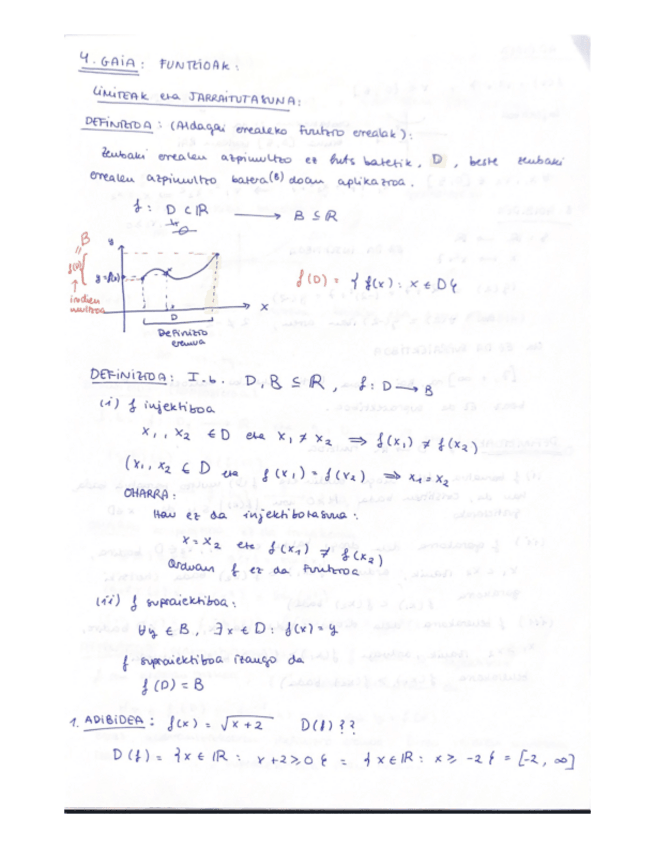 4. GAIA: FUNTZIOAK:
LIMITEAK eta JARRAITUTASUNA:
DEFINIZIOA: (Aldagai errealeko funtzio errealak):
Zenbaki errealen azpimultzo ez huts batetik, D, beste zenbaki
errealen azpimultzo batera (B) doan aplikazioa.
f: D ⊂ ℝ ⟶ B ⊆ ℝ
B
f(D)
y
y=f(x)
f(D) = { f(x) : x ∈ D }
irudien
multzoa
x
D
Definizio
eremua
DEFINIZIOA: I.b. D, B ⊆ ℝ, f: D ⟶ B
(i) f injektiboa
x₁, x₂ ∈ D eta x₁ ≠ x₂ ⟹ f(x₁) ≠ f(x₂)
(x₁, x₂ ∈ D eta f(x₁) = f(x₂) ⟹ x₁ = x₂
OHARRA:
Hau ez da injektibotasuna:
x = x₂ eta f(x₁) ≠ f(x₂)
Orduan f ez da funtzioa
(ii) f supraiektiboa:
∀y ∈ B, ∃x ∈ D : f(x) = y
f supraiektiboa izango da
f(D) = B
1. ADIBIDEA: f(x) = √x+2 D(f)??
D(f) = {x ∈ ℝ : x+2 ⩾ 0} = {x ∈ ℝ : x ⩾ -2} = [-2, ∞]